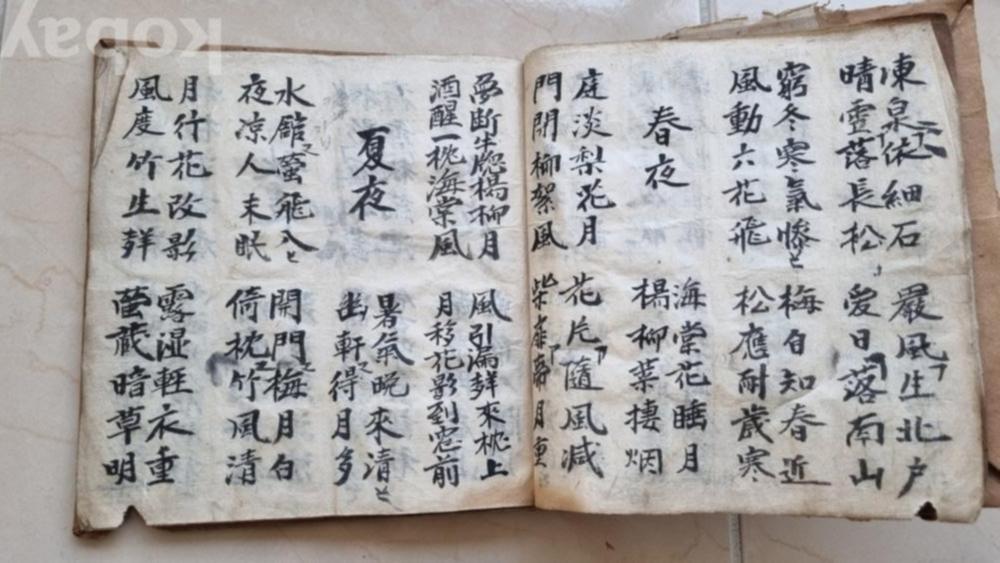 東泉依細石
晴雪落長松
嚴風生北戶
愛日落南山
窮冬寒氣慘
風動六花飛
梅白知春近
松應耐歲寒
春夜
海棠花睡月
楊柳葉棲烟
庭淡梨花月
門閉柳絮風
花片隨風減
柴扉帶月重
夢斷半牕楊柳月
酒醒一枕海棠風
風引漏聲來枕上
月移花影到窓前
夏夜
暑氣晚來清
幽軒得月多
水館螢飛入
夜凉人未眠
開門梅月白
倚枕竹風清
月行花改影
風度竹生聲
露湿輕衣重
螢藏暗草明
kobay